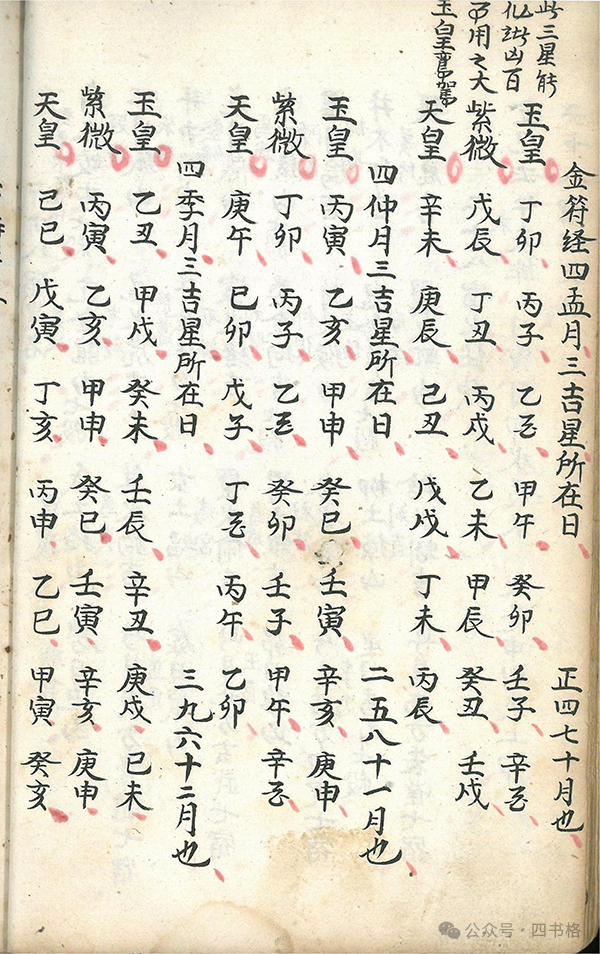 此三星能
化诸凶百
用之大
玉皇鸾驾
金符经四孟月三吉星所在日 正四七十月也
玉皇 丁卯 丙子 乙酉 甲午 癸卯 壬子 辛酉
紫微 戊辰 丁丑 丙戌 乙未 甲辰 癸丑 壬戌
天皇 辛未 庚辰 己丑 戊戌 丁未 丙辰
四仲月三吉星所在日 二五八十一月也
玉皇 丙寅 乙亥 甲申 癸巳 壬寅 辛亥 庚申
紫微 丁卯 丙子 乙酉 癸卯 壬子 甲午 辛酉
天皇 庚午 己卯 戊子 丁酉 丙午 乙卯
四季月三吉星所在日 三九六十二月也
玉皇 乙丑 甲戌 癸未 壬辰 辛丑 庚戌 己未
紫微 丙寅 乙亥 甲申 癸巳 壬寅 辛亥 庚申
天皇 己巳 戊寅 丁亥 丙申 乙巳 甲寅 癸亥
公众号·四书格